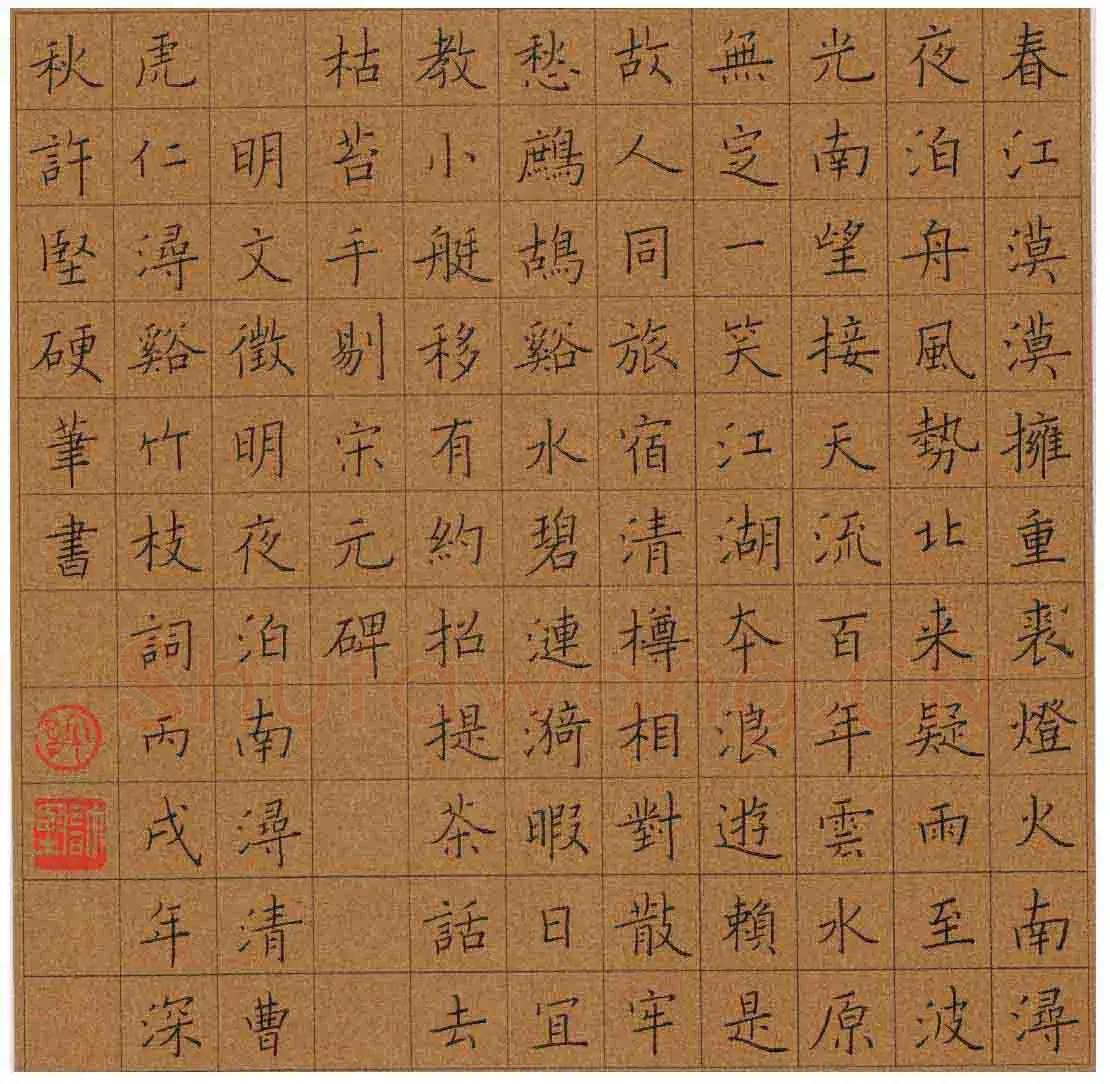 春江漠漠擁重裘燈火南潯
夜泊舟風勢北来疑雨至波
光南望接天流百年雲水原
無定一笑江湖夲浪遊賴是
故人同旅宿清樽相對散牢
愁鷓鴣谿水碧漣漪暇日宜
教小艇移有約招提茶話去
枯苔手剔宋元碑
明文徵明夜泊南潯清曹
虎仁潯谿竹枝詞丙戌年深
秋許堅硬筆書
Shufawang.CN